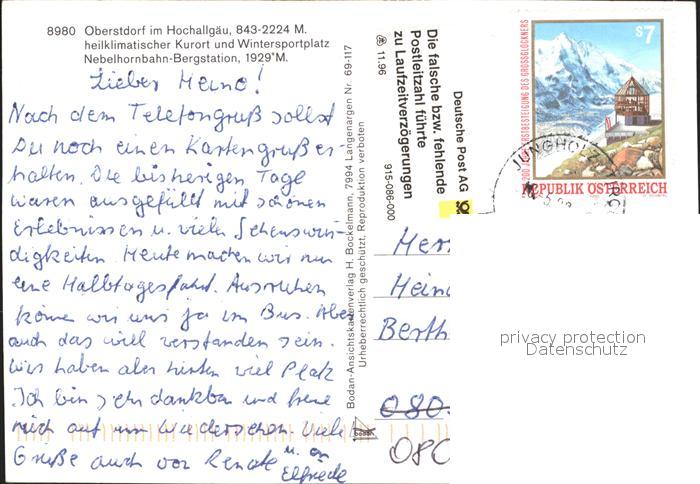 8980 Oberstdorf im Hochallgäu, 843-2224 M.
heilklimatischer Kurort und Wintersportplatz
Nebelhornbahn-Bergstation, 1929 M.
Lieber Heino!
Nach dem Telefongruß sollst
Du noch einen Kartengruß er-
halten. Die bisherigen Tage
waren ausgefüllt mit schönen
Erlebnissen u. vielen Sehenswür-
digkeiten. Heute machen wir nur
eine Halbtagesfahrt. Ausruhen
können wir uns ja im Bus. Aber
auch das will verstanden sein.
Wir haben aber hinten viel Platz
Ich bin sehr dankbar und freue
mich auf ein Wiedersehen. Viele
Grüße auch von Renate u. an
Elfriede
Bodan-Ansichtskartenverlag H. Bockelmann, 7994 Langenargen Nr. 69-117
Urheberrechtlich geschützt. Reproduktion verboten
Deutsche Post AG
Die falsche bzw. fehlende
Postleitzahl führte
zu Laufzeitverzögerungen
11.96
915-086-000
S7
200 JAHRE ERSTBESTEIGUNG DES GROSSGLOCKNERS
REPUBLIK ÖSTERREICH
JUNGHOLZ
Her
Hein
Berth
080
080
privacy protection
Datenschutz